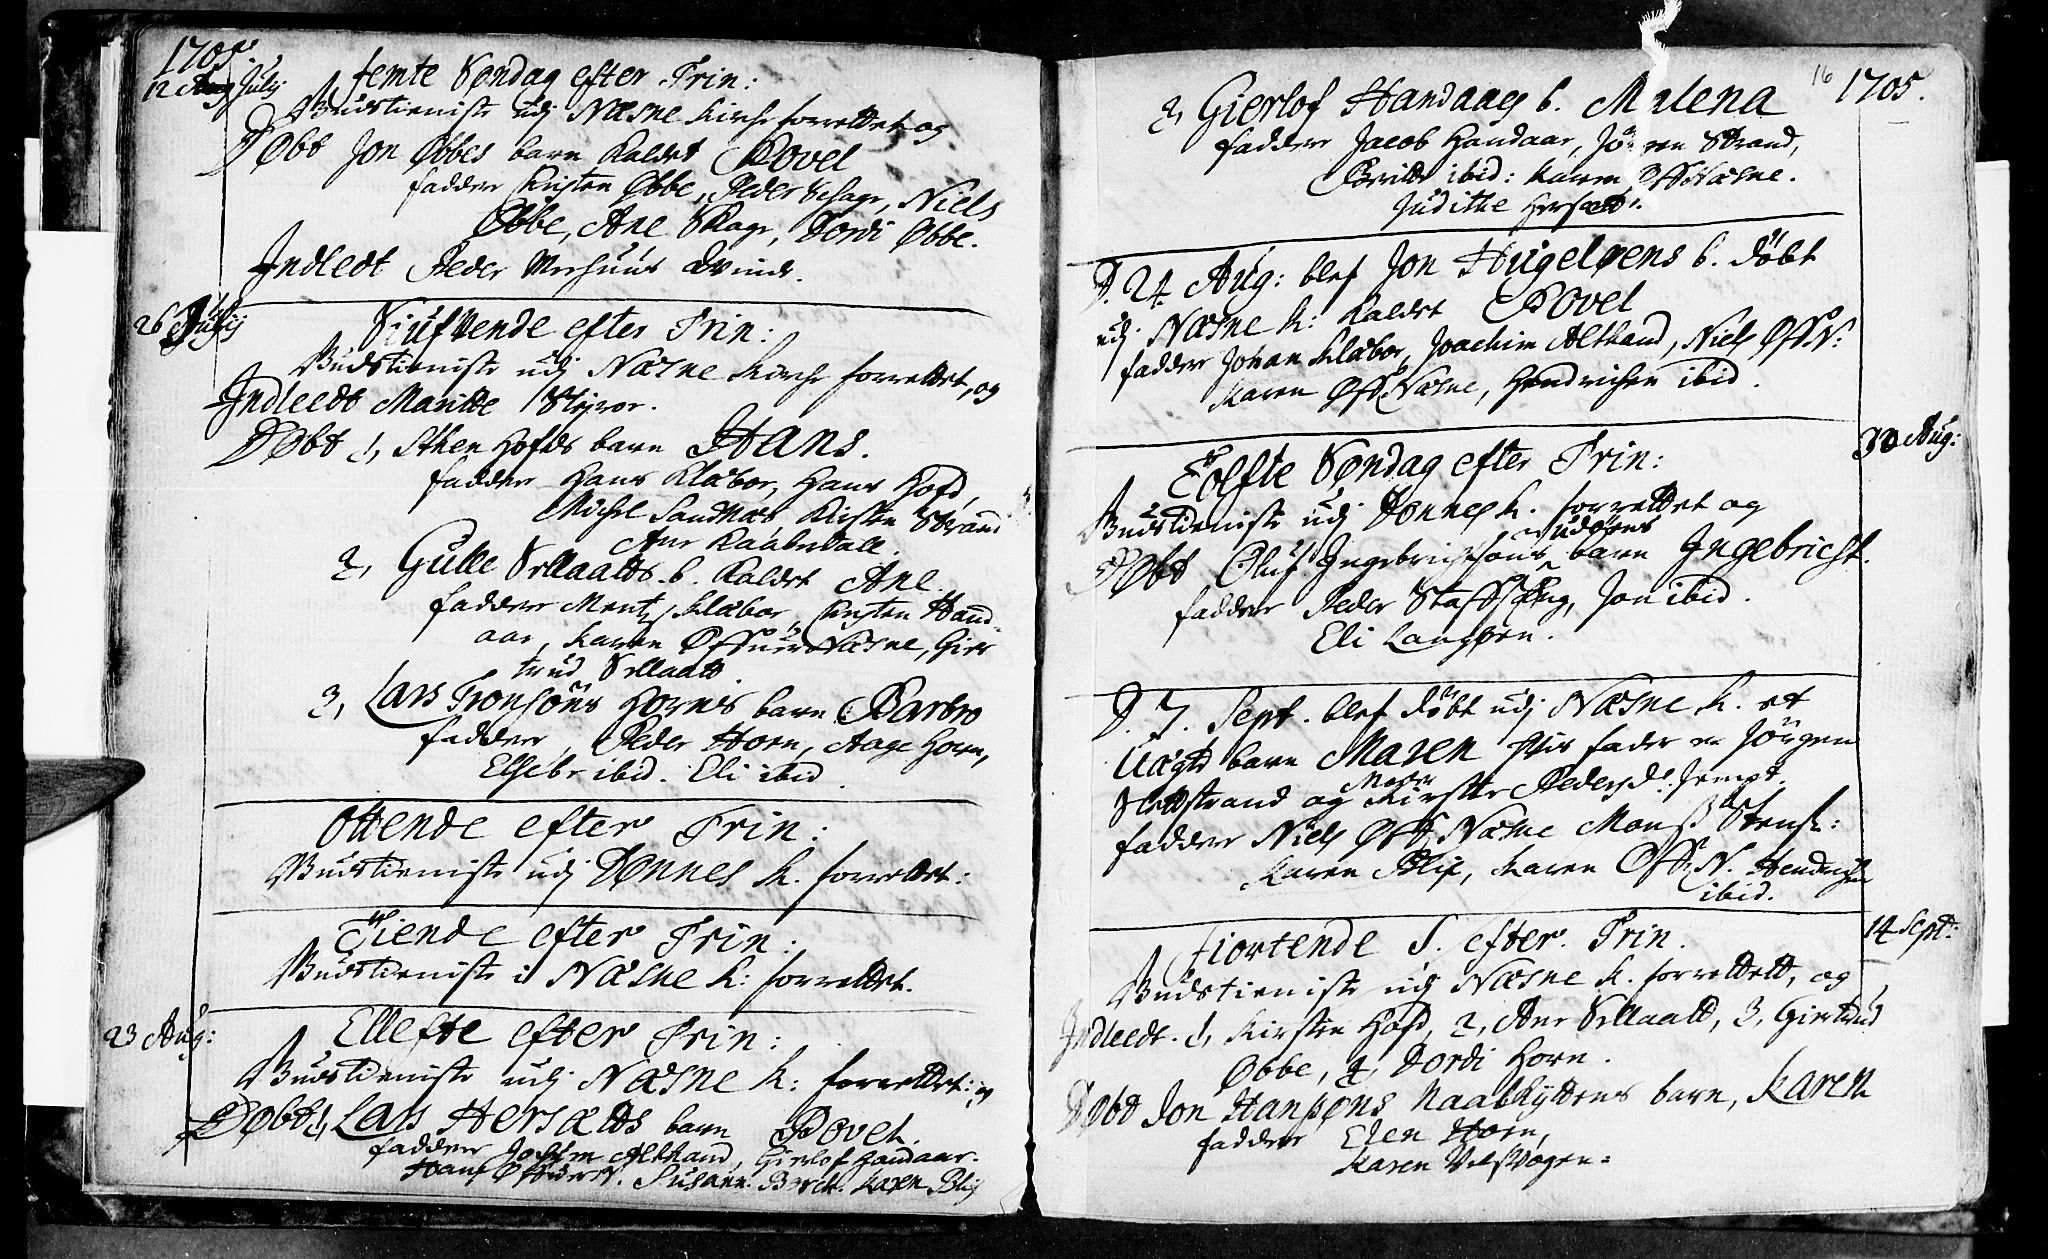 1705.
12 July
femte Søndag efter Trin:
Gudstieniste udj Næsne Kirche forrettet og
Døbt Jon Øbbes barn kaldet Povel
faddere Christen Øbbe, Peder Schage, Niels
Øbbe, Ane Skage, Dordi Øbbe.
Indledt Peder Qvinde.
26 July
Siufvende efter Trin:
Gudstieniste udj Næsne Kirche forrettet, og
Indleedt Maritte
Døbt 1, Sthen Hofds barn Hans.
faddere Hans Klabor, Hans Hofd,
Michel Sandnæs, Kirsten Strand
Ane
2, Gulle Sellaatds b. kaldet Ane
faddere Mentz Klabor, Christen Hand-
aar, Karen Offuer Næsne, Gier
trud Sellaatd.
3, Lars Tronsøns Hornes barn Barbro
faddere, Peder Horn, Aage Horn,
Elsebe ibid. Eli ibid
Ottende efter Trin:
Gudstieniste udj Dønnes K. forrettet:
Tiende efter Trin:
Gudstieniste i Næsne K: forrettet.
23 Aug:
Ellefte efter Trin:
Gudstieniste udj Næsne K: forrettet: og
Døbt 1, Lars Hersætds barn Povel.
faddere Jochim Althand, Gierlof Handaar.
Hans Offuer N. Susann: Borch. Karen Blix
16 1705.
2, Gierlof Handaars b. Malena
faddere Jacob Handaar, Jörgen Strand,
ibid: Karen Off Næsne.
Judithe Hersætd.
D. 24 Aug: blef Jon Hugeløens b. döbt
udj Næsne K: kaldet Povel
faddere Johan Klabor, Joachim Althand, Niels Off N:
Karen Off Næsne, Hendrichen ibid.
30 Aug:
Tolfte Søndag efter Trin:
Gudstieniste udj Dønnes K. forrettet og
Døbt Oluf Ingebrichtsøns barn Ingebricht.
faddere Peder Jon ibid.
Eli
D. 7. Sept. blef döbt udj Næsne K. et
Uægte barn Maren Hvis fader er Jörgen
og Moder Kirstte Pedersd:
faddere Niels Off Næsne
Karen Blix, Karen Off N. Hendrichen
ibid.
14 Sept:
Fiortende S. efter Trin.
Gudstieniste udj Næsne K. forrettett, og
Indleedt. 1, Kirsten Hofd, 2, Ane Sellaatd, 3, Giertrud
Øbbe, 4, Dordi Horn.
Døbt Jon Hanssøns barn, Karen
faddere Elen Horn,
Karen